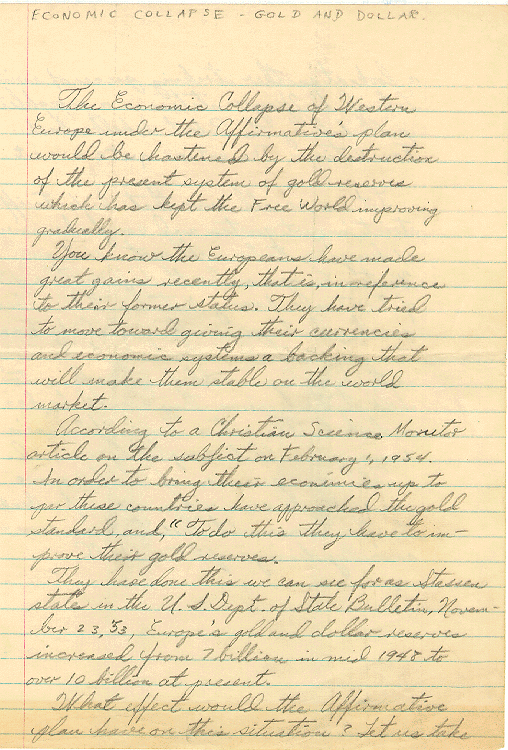 ECONOMIC COLLAPSE - GOLD AND DOLLAR.
The Economic Collapse of Western
Europe under the Affirmative's plan
would be hastened by the destruction
of the present system of gold reserves
which has kept the Free World improving
gradually.
You know the Europeans have made
great gains recently, that is, in reference
to their former status. They have tried
to move toward giving their currencies
and economic systems a backing that
will make them stable on the world
market.
According to a Christian Science Monitor
article on the subject on February 1, 1954.
In order to bring their economies up to
par these countries have approached the gold
standard, and, "To do this they have to im-
prove their gold reserves.
They have done this we can see, for as Stassen
states in the U.S. Dept. of State Bulletin, Novem-
ber 23, '53, Europe's gold and dollar reserves
increased from 7 billion in mid 1948 to
over 10 billion at present.
What effect would the Affirmative
plan have on this situation? Let us take